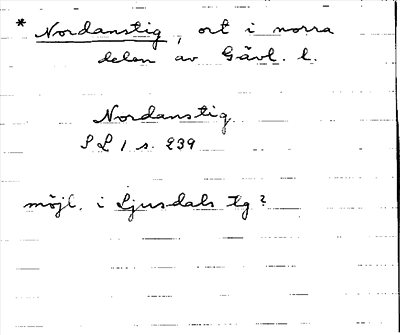 * Nordanstig, ort i norra
delen av Gävl. l.
Nordanstig
SL 1 s. 239
möjl. i Ljusdals tg?